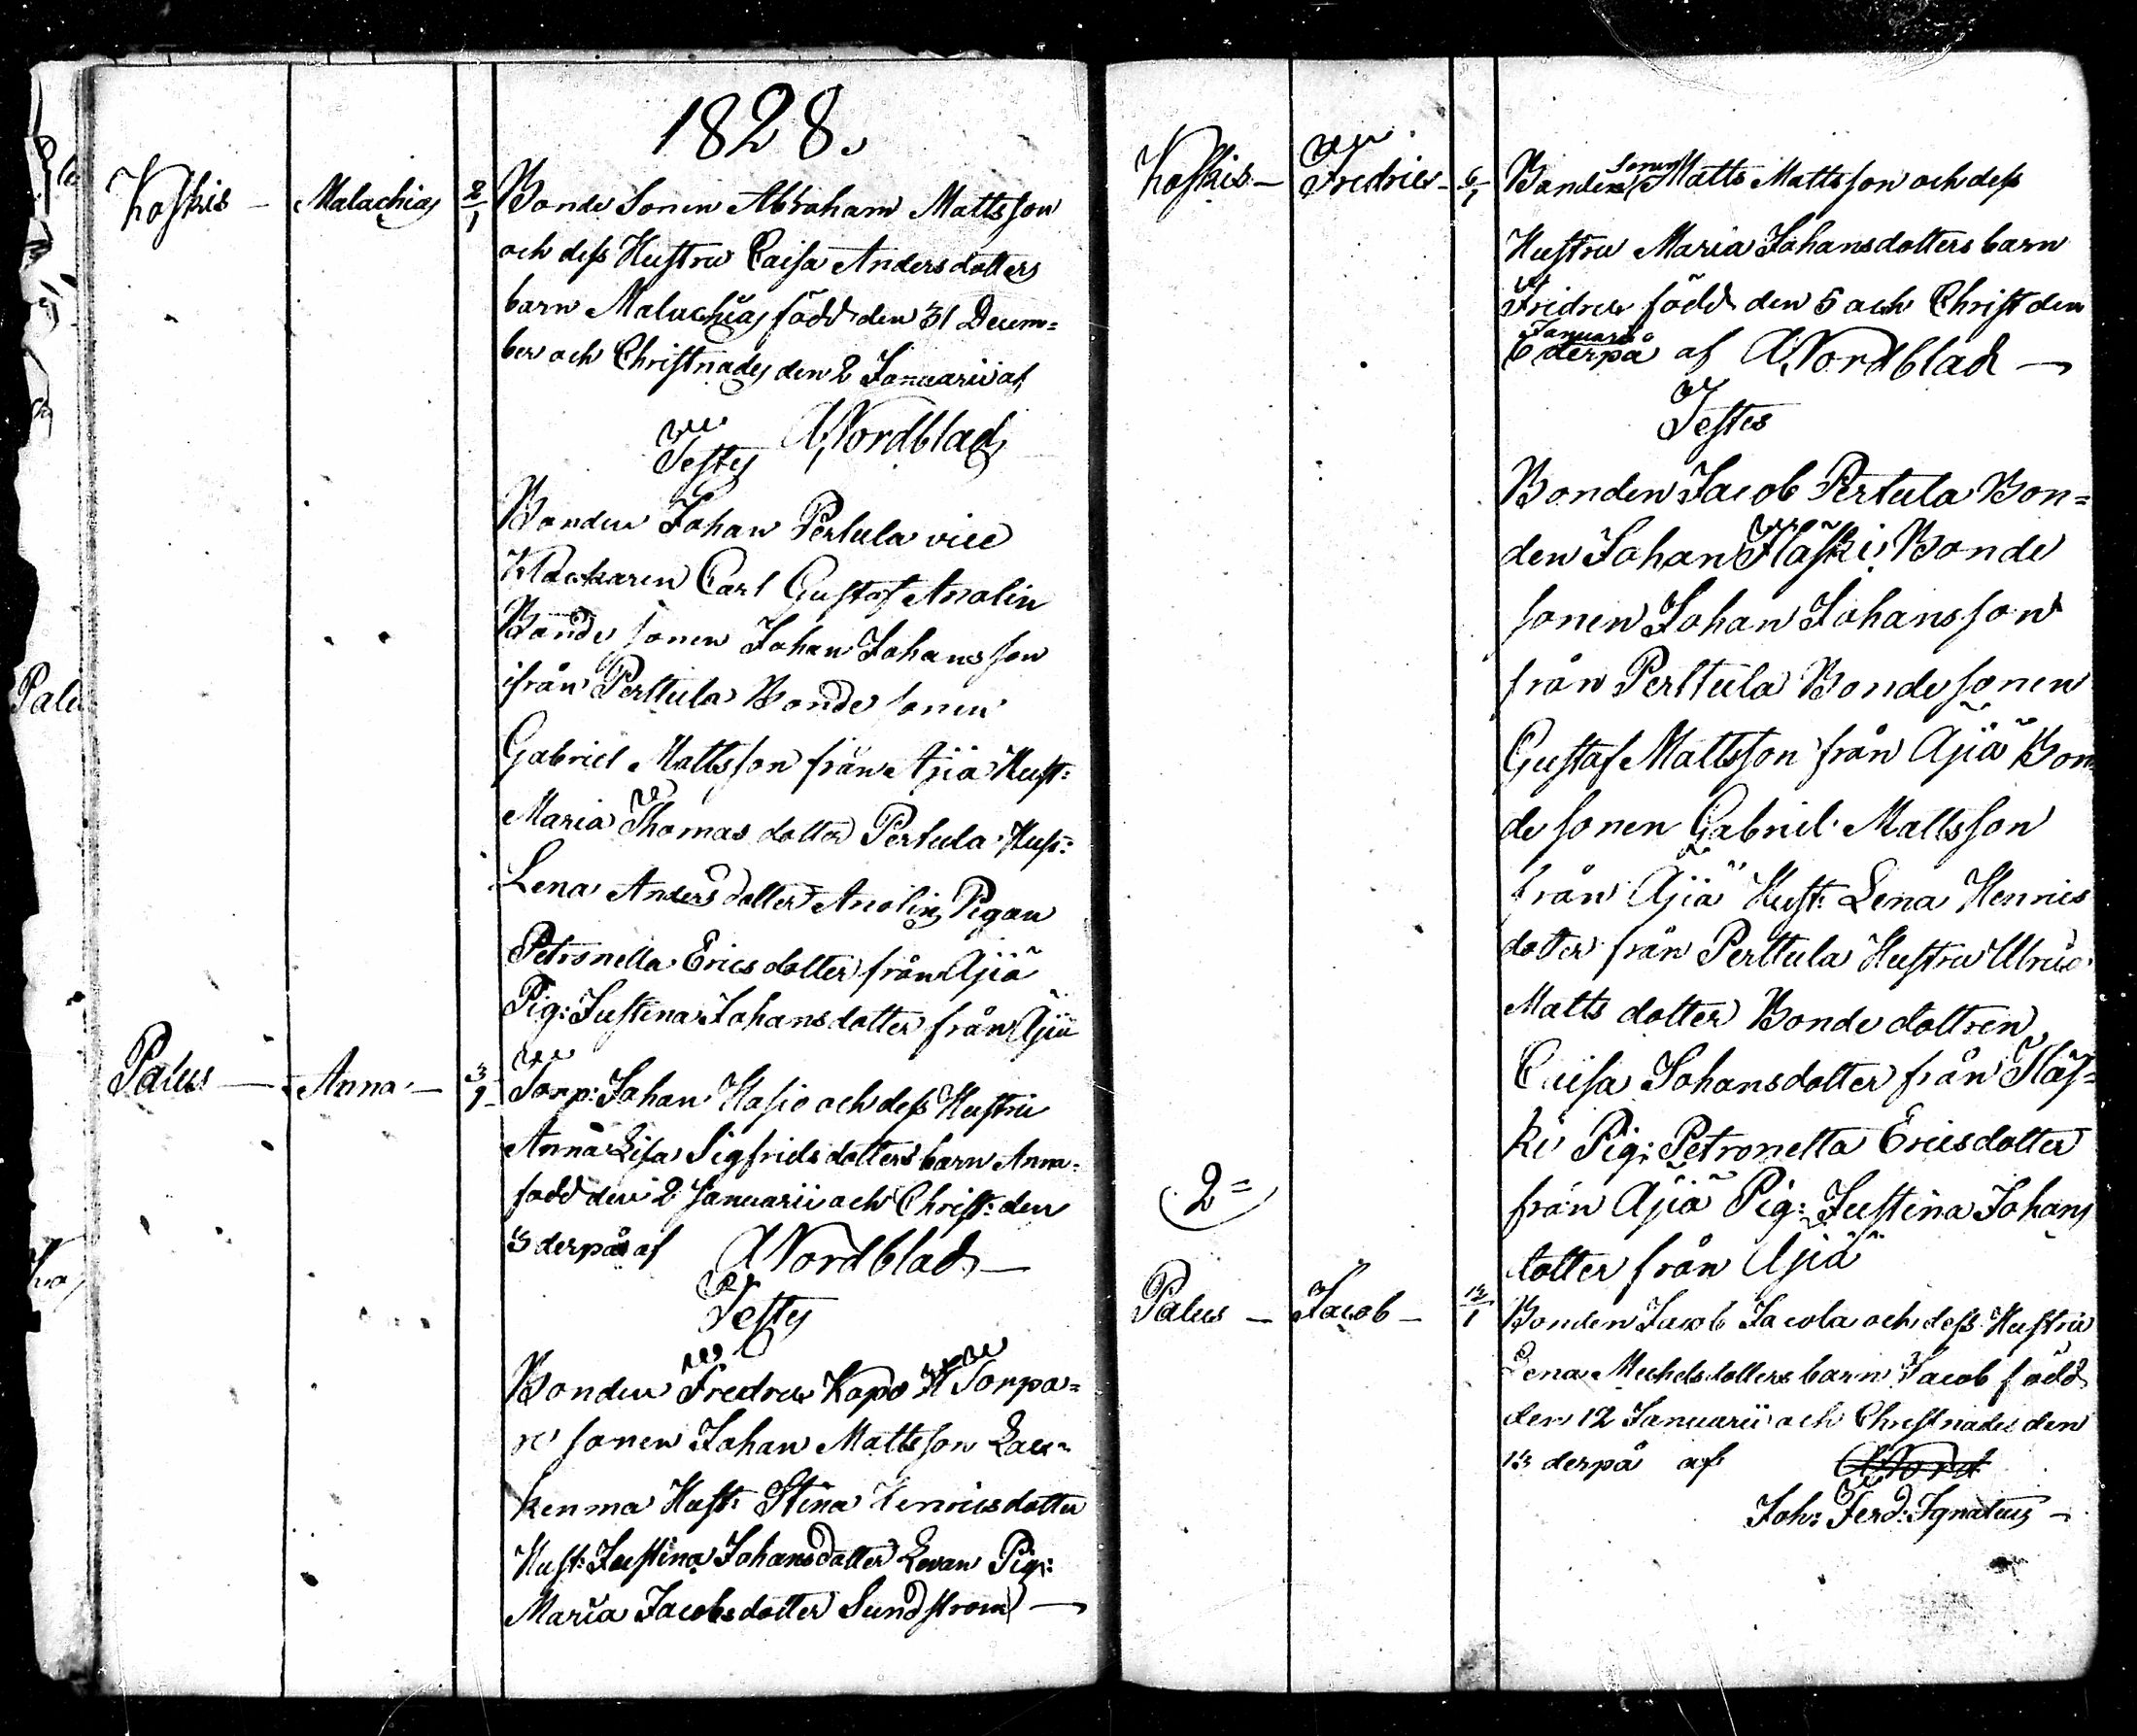 1828.
Koskis – Malachias 2/1 Bonde Sonen Abraham Mattsson
och dess Hustru Caisa Andersdotters
barn Malachias född den 31 Decem=
ber och Christnades den 2 Januarii af
A Nordblad
Testes
Bonden Johan Pertula vice
Klockaren Carl Gustaf Anolin
Bonde sonen Johan Johansson
ifrån Perttula Bonde sonen
Gabriel Mattsson från Äjiä Hust:
Maria Thomas dotter Pertula Hust:
Lena Anders dotter Anolin Pigan
Petronella Erics dotter från Äjiä
Pig: Justina Johansdotter från Äjiä
Palus – Anna – 3/1 Torp: Johan Hasio och dess Hustru
Anna Lisa Sigfrids dotters barn Anna
född den 2 Januarii och Christ: den
3 derpå af A Nordblad –
Testes
Bonden Fredric Kapo Torpa=
re sonen Johan Mattsson
Hust: Stina Henricsdotter
Hust: Justina Johansdotter Levan Pig:
Maria Jacobsdotter Sundström –
Koskis – Fredric – 6/1 Bonde Sonen Matts Mattsson och dess
Hustru Maria Johansdotters barn
Fridric född den 5 och Christ den
6 Januarii derpå af A Nordblad –
Testes
Bonden Jacob Pertula Bon=
den Johan Fläski Bonde
sonen Johan Johansson
från Perttula Bonde sonen
Gustaf Mattsson från Äjiä Bon
de sonen Gabriel Mattsson
från Äjiä Hust: Lena Henrics
dotter från Perttula Hustru Ulrica
Matts dotter Bonde dottren
Caisa Johansdotter från Fläs=
ki Pig: Petronella Ericsdotter
2=
från Äjiä Pig: Justina Johans
dotter från Äjiä
Palus – Jacob – 13/1 Bonden Jacob Jacola och dess Hustru
Lena Michelsdotters barn Jacob född
den 12 Januarii och Christnades den
13 derpå af A Nord
Joh: Ferd: Ignatius –